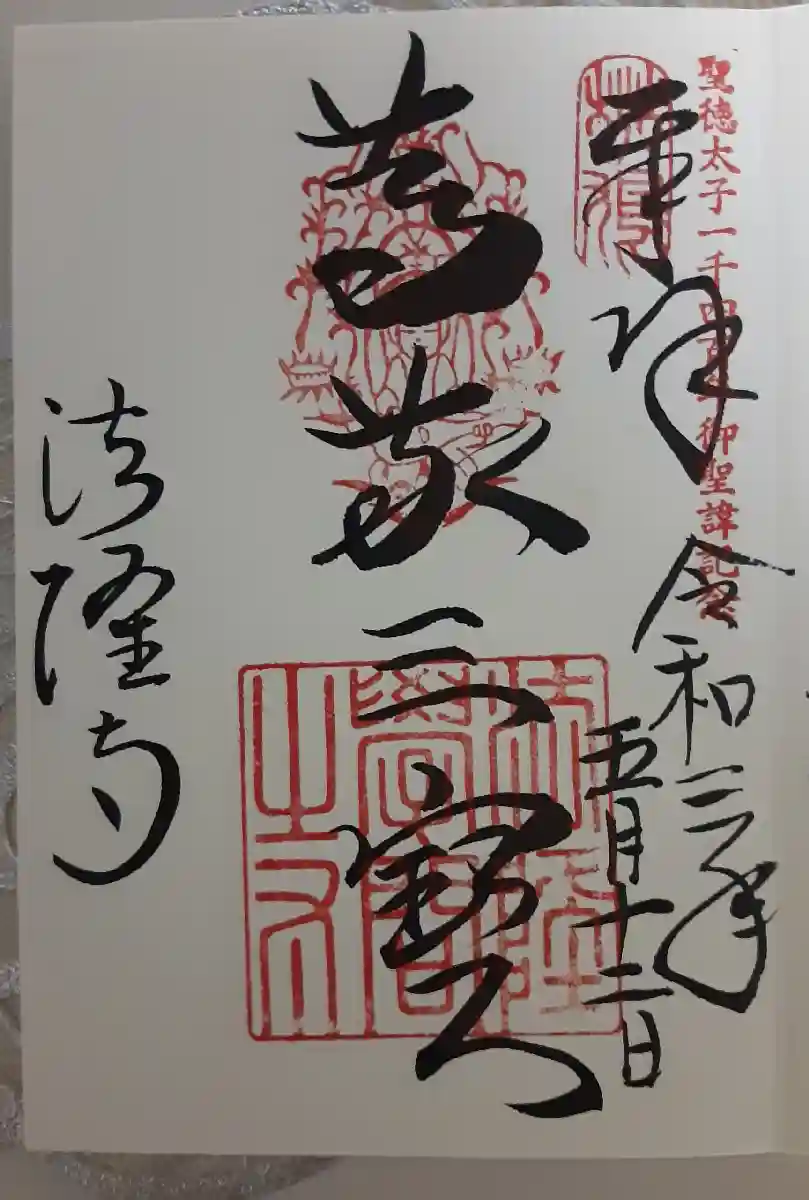 聖徳太子一千四百年御聖諱記念
奉拝
令和三年
五月十二日
篤敬三寶
法隆
學問
之
法隆寺